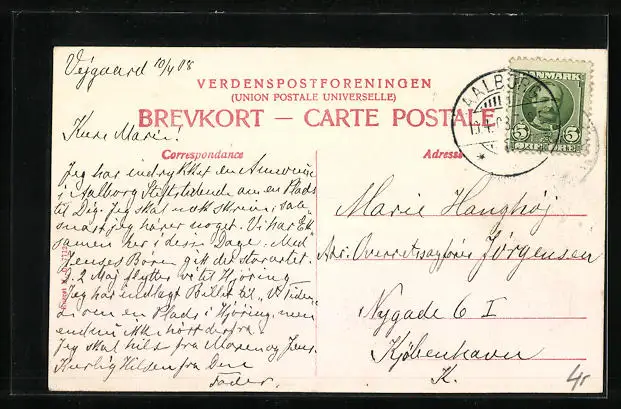 Vejgaard 10/4 08
VERDENSPOSTFORENINGEN
(UNION POSTALE UNIVERSELLE)
BREVKORT — CARTE POSTALE
AALBORG
DANMARK
5 5
ØRE ØRE
Kære Marie!
Correspondance
Jeg har indrykket en Annonce
i Aalborg Stiftstidende om en Plads
til Dig. Jeg skal nok skrive saa
snart jeg hører noget. Vi har
sammen her i disse Dage. Med
Jenses Børn gik det storartet.
2 Maj flytter vi til Hjøring
Jeg har indlagt Billet til
om en Plads i Hjøring, men
endnu ikke hørt derfra
Jeg skal hilse fra Maren og Jens.
Kærlig Hilsen fra Din
Fader.
Adresse
Marie Hanghøj
Adr. Overretssagfører Jørgensen
Nygade 6 I
Kjøbenhavn
K.